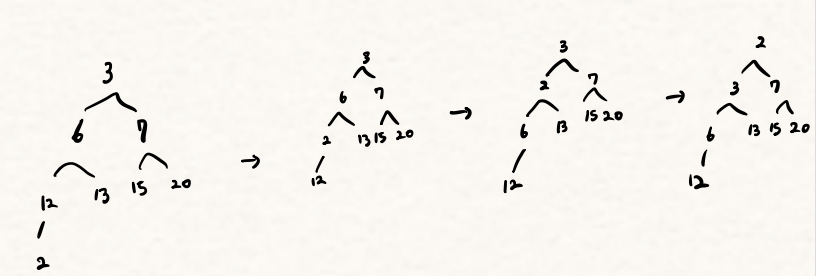 3
6 7
12 13 15 20
2
→
3
6 7
2 13 15 20
12
→
3
2 7
6 13 15 20
12
→
2
3 7
6 13 15 20
12